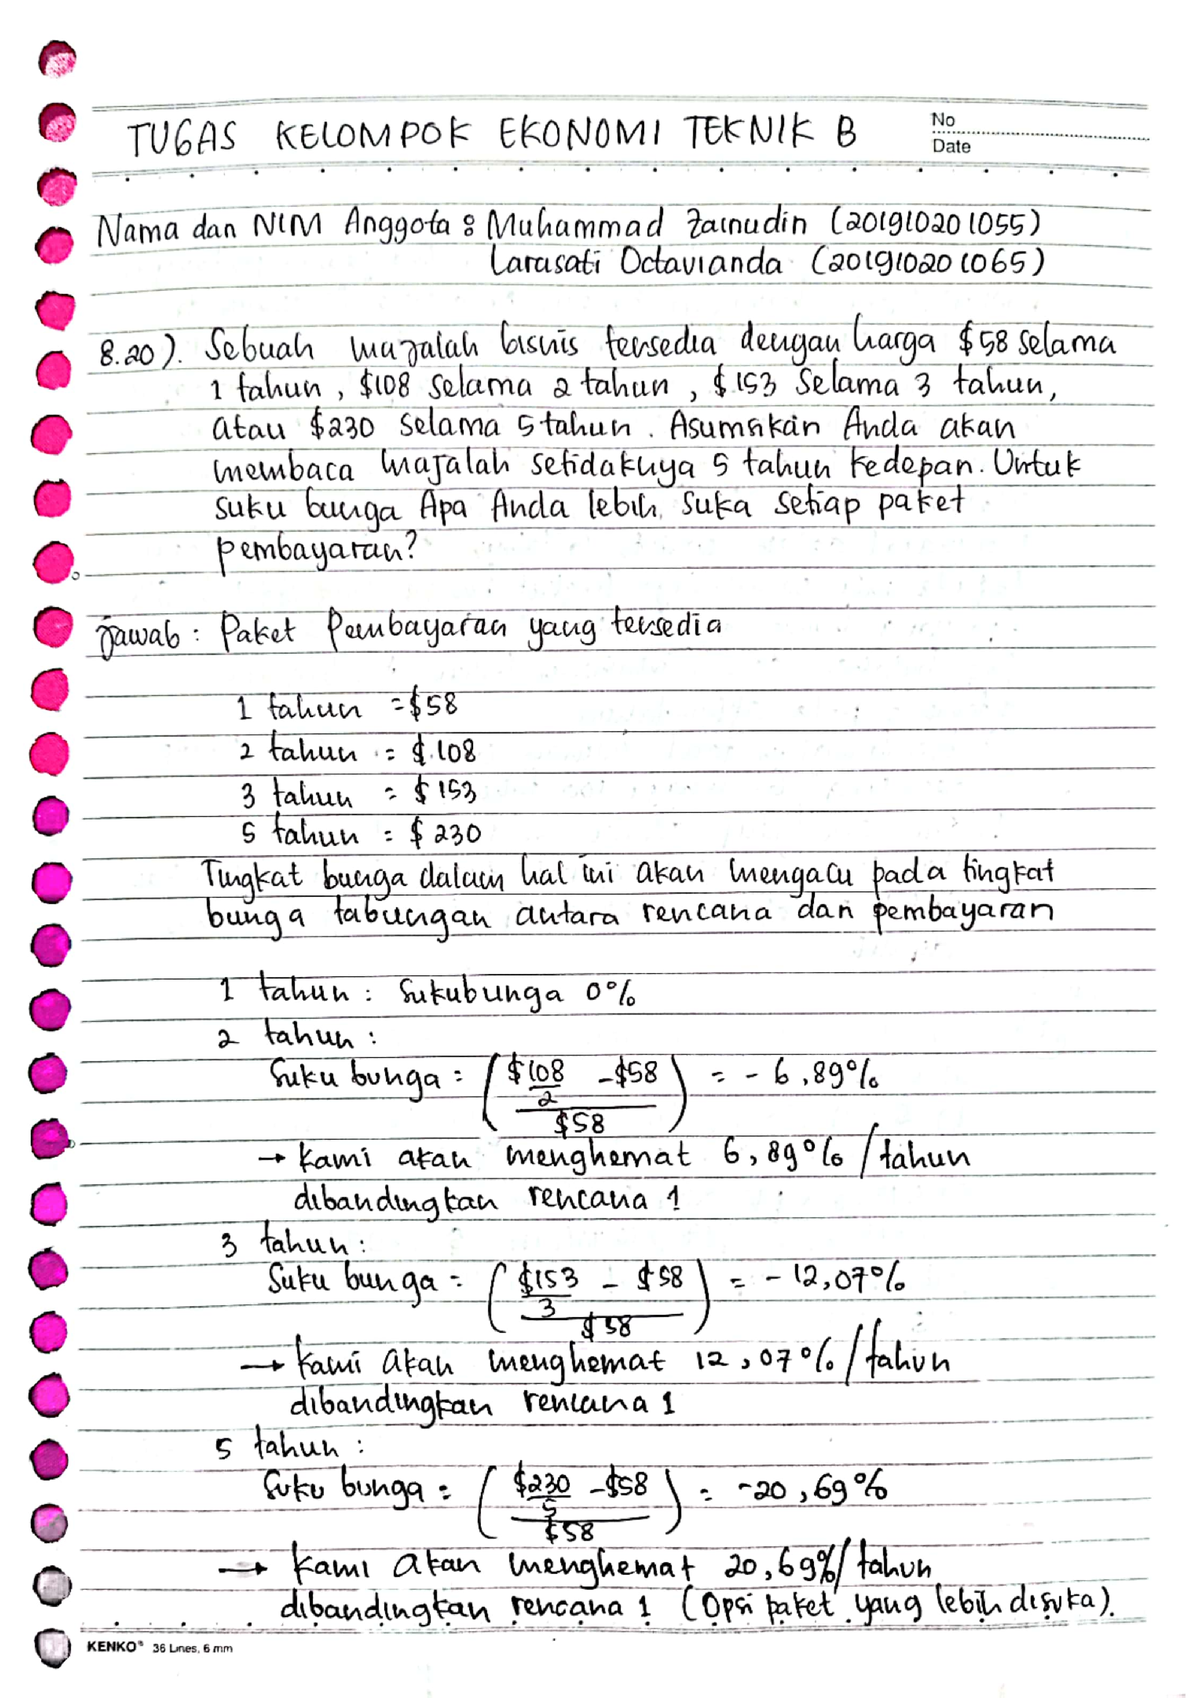 TUGAS KELOMPOK EKONOMI TEKNIK B
No
Date
Nama dan NIM Anggota : Muhammad Zainudin (201910201055)
Larasati Octavianda (201910201065)
8.20). Sebuah majalah bisnis tersedia dengan harga $58 selama
1 tahun, $108 selama 2 tahun, $153 selama 3 tahun,
atau $230 selama 5 tahun. Asumsikan Anda akan
membaca majalah setidaknya 5 tahun kedepan. Untuk
suku bunga Apa Anda lebih suka setiap paket
pembayaran?
Jawab : Paket Pembayaran yang tersedia
1 tahun = $58
2 tahun = $108
3 tahun = $153
5 tahun = $230
Tingkat bunga dalam hal ini akan mengacu pada tingkat
bunga tabungan antara rencana dan pembayaran
1 tahun : Sukubunga 0%
2 tahun :
Suku bunga = ($108/2 - $58 / $58) = - 6,89%
→ Kami akan menghemat 6,89% / tahun
dibandingkan rencana 1
3 tahun :
Suku bunga = ($153/3 - $58 / $58) = - 12,07%
→ Kami akan menghemat 12,07% / tahun
dibandingkan rencana 1
5 tahun :
Suku bunga = ($230/5 - $58 / $58) = -20,69%
→ Kami akan menghemat 20,69% / tahun
dibandingkan rencana 1 (Opsi paket yang lebih disuka).
KENKO® 36 Lines, 6 mm